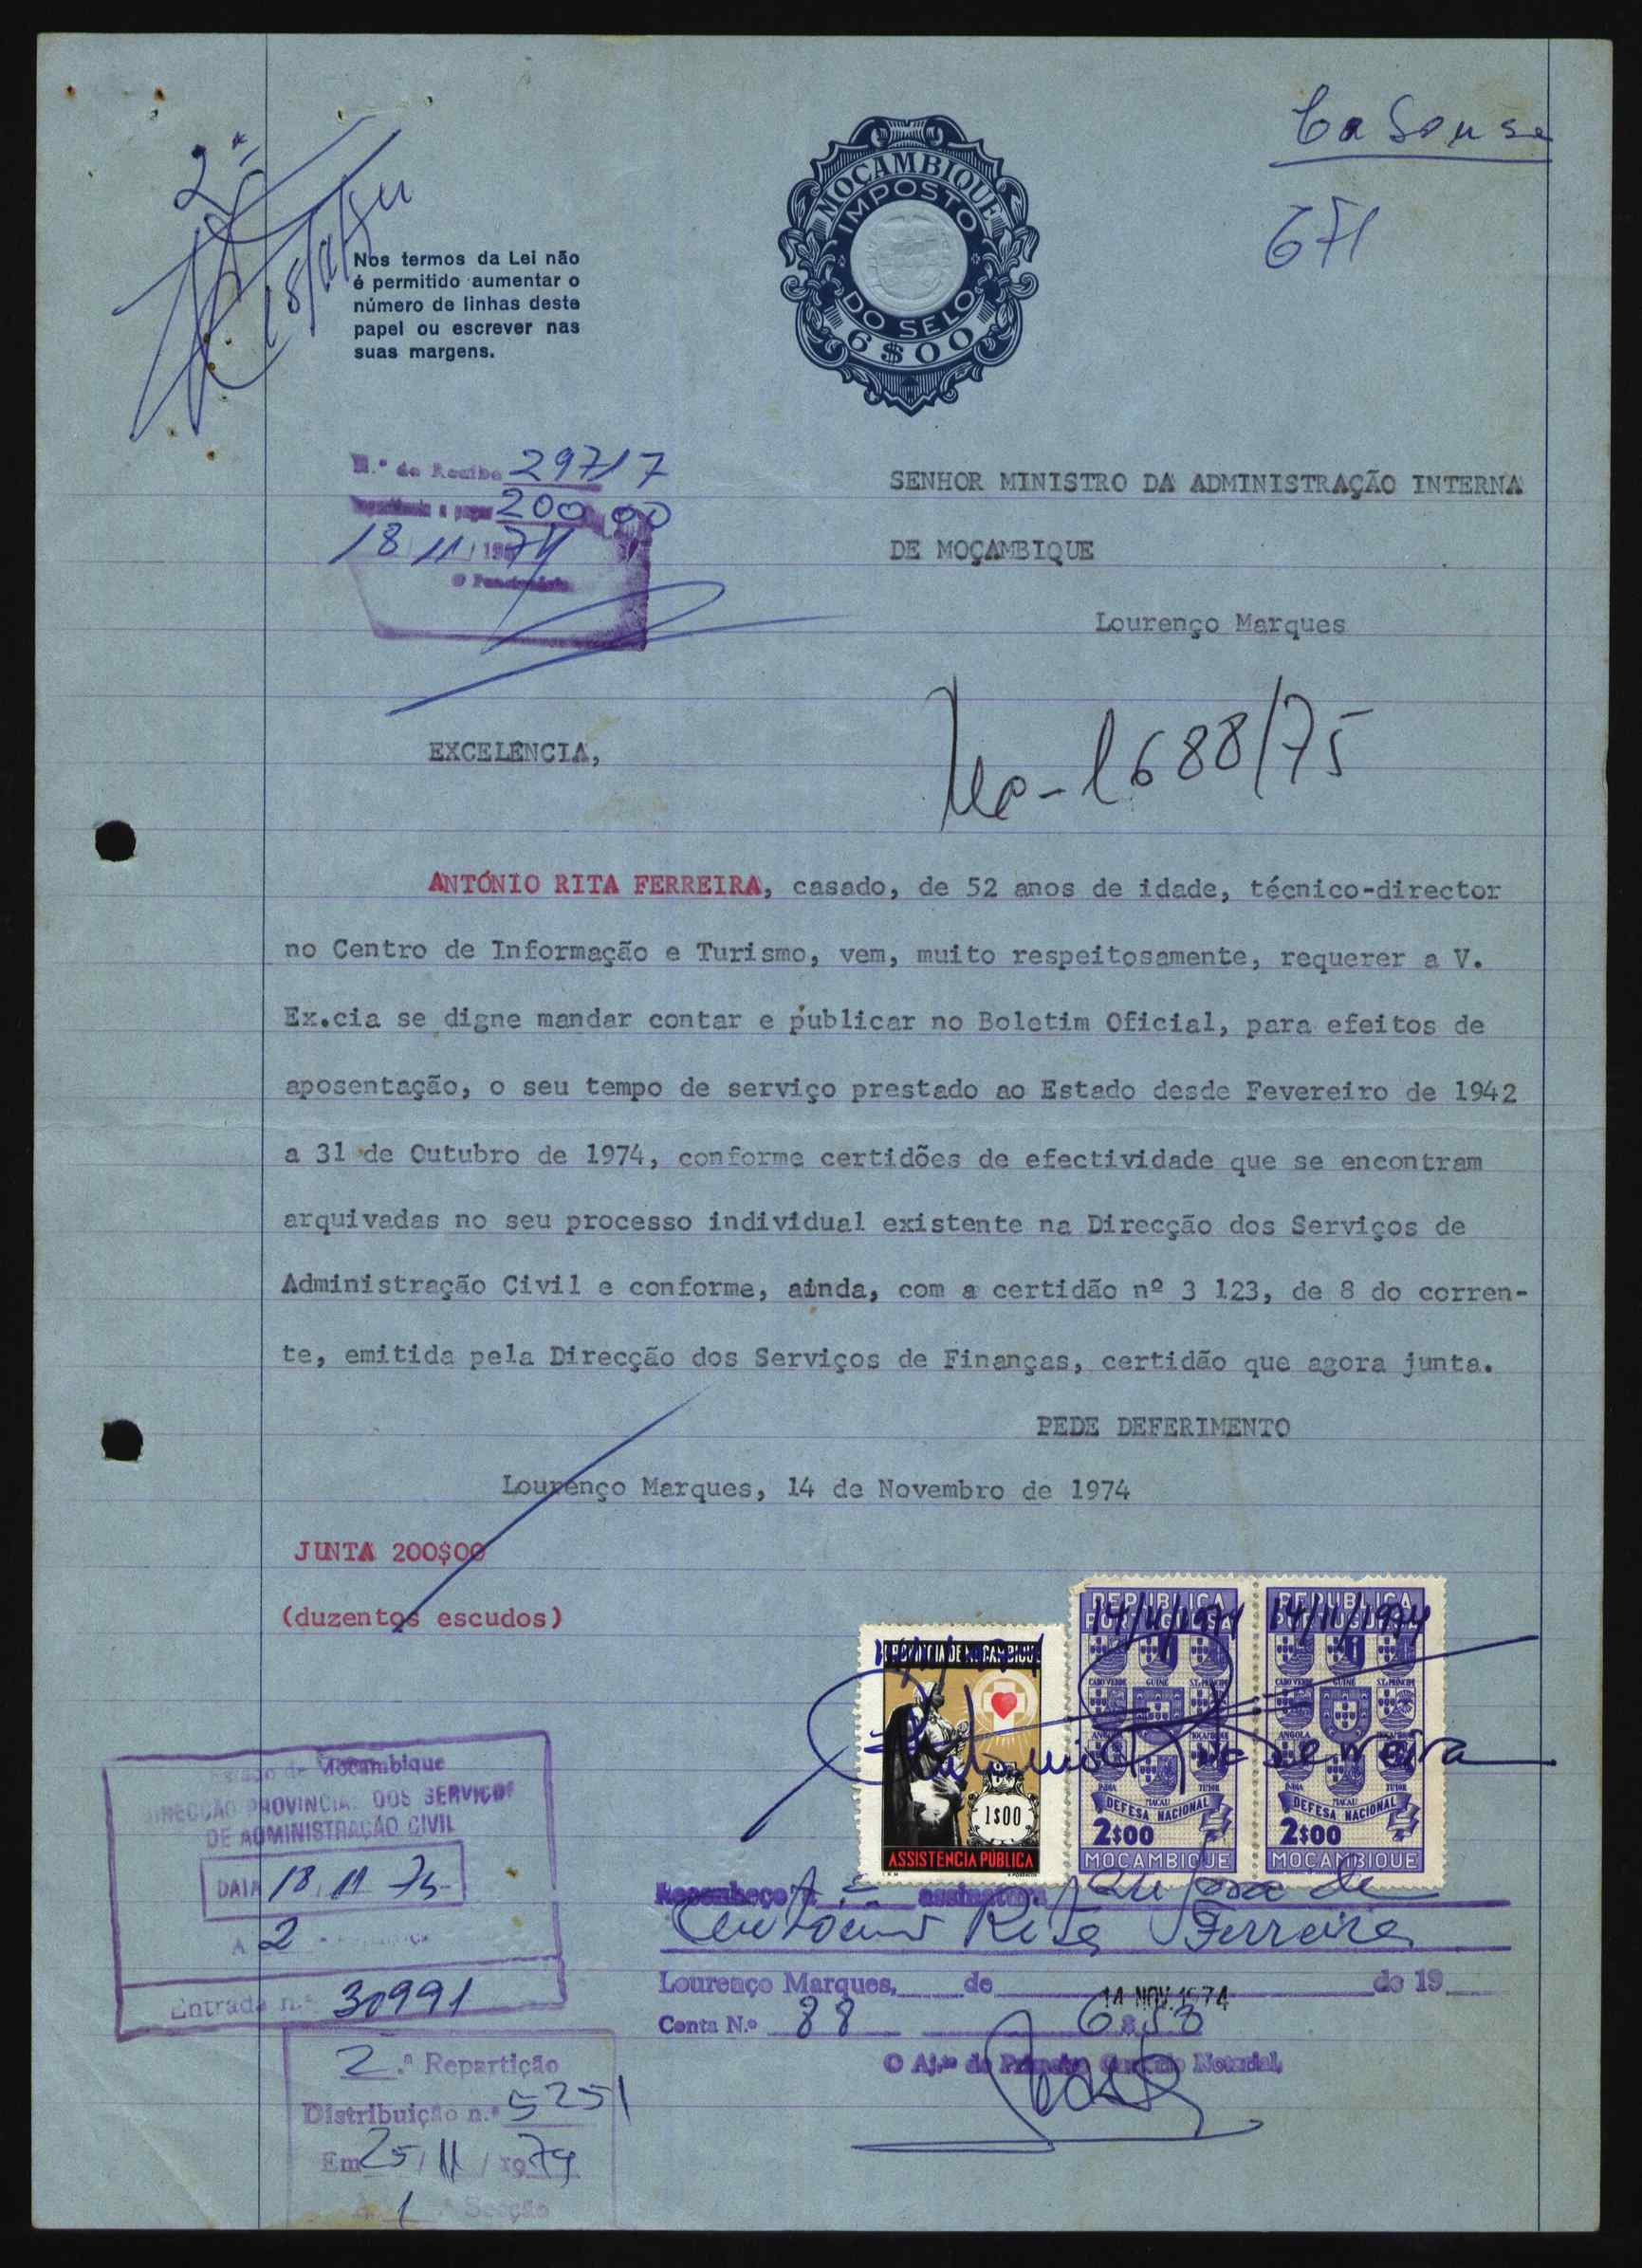 2ª
671
MOÇAMBIQUE
IMPOSTO
DO SELO
6$00
Nos termos da Lei não
é permitido aumentar o
número de linhas deste
papel ou escrever nas
suas margens.
N.º do Recibo 29717
Importância a pagar 200 00
18/11/1974
O Funcionário
SENHOR MINISTRO DA ADMINISTRAÇÃO INTERNA
DE MOÇAMBIQUE
Lourenço Marques
1688/75
EXCELÊNCIA,
ANTÓNIO RITA FERREIRA, casado, de 52 anos de idade, técnico-director
no Centro de Informação e Turismo, vem, muito respeitosamente, requerer a V.
Ex.cia se digne mandar contar e publicar no Boletim Oficial, para efeitos de
aposentação, o seu tempo de serviço prestado ao Estado desde Fevereiro de 1942
a 31 de Outubro de 1974, conforme certidões de efectividade que se encontram
arquivadas no seu processo individual existente na Direcção dos Serviços de
Administração Civil e conforme, ainda, com a certidão nº 3 123, de 8 do corren-
te, emitida pela Direcção dos Serviços de Finanças, certidão que agora junta.
PEDE DEFERIMENTO
Lourenço Marques, 14 de Novembro de 1974
JUNTA 200$00
(duzentos escudos)
PROVINCIA DE MOÇAMBIQUE
1$00
ASSISTENCIA PÚBLICA
REPUBLICA PORTUGUESA
14/11/1974
CABO VERDE GUINE S.T. PRINCIPE
ANGOLA MOÇAMBIQUE
INDIA MACAU TIMOR
DEFESA NACIONAL
2$00
MOÇAMBIQUE
REPUBLICA PORTUGUESA
14/11/1974
CABO VERDE GUINE S.T. PRINCIPE
ANGOLA MOÇAMBIQUE
INDIA MACAU TIMOR
DEFESA NACIONAL
2$00
MOÇAMBIQUE
António Rita Ferreira
Estado de Moçambique
DIRECÇÃO PROVINCIAL DOS SERVIÇOS
DE ADMINISTRAÇÃO CIVIL
DATA 18 11 74
A 2
Entrada n.º 30991
Reconheço a assinatura supra de
António Rita Ferreira
Lourenço Marques, de de 19
14 NOV. 1974
Conta N.º 88 6$50
O Aj.te do Primeiro Cartório Notarial,
2.ª Repartição
Distribuição n.º 5251
Em 25/11/1974
À 1.ª Secção